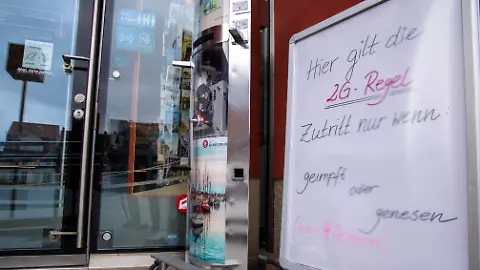 Hier gilt die
2G-Regel
Zutritt nur wenn:
geimpft oder
genesen